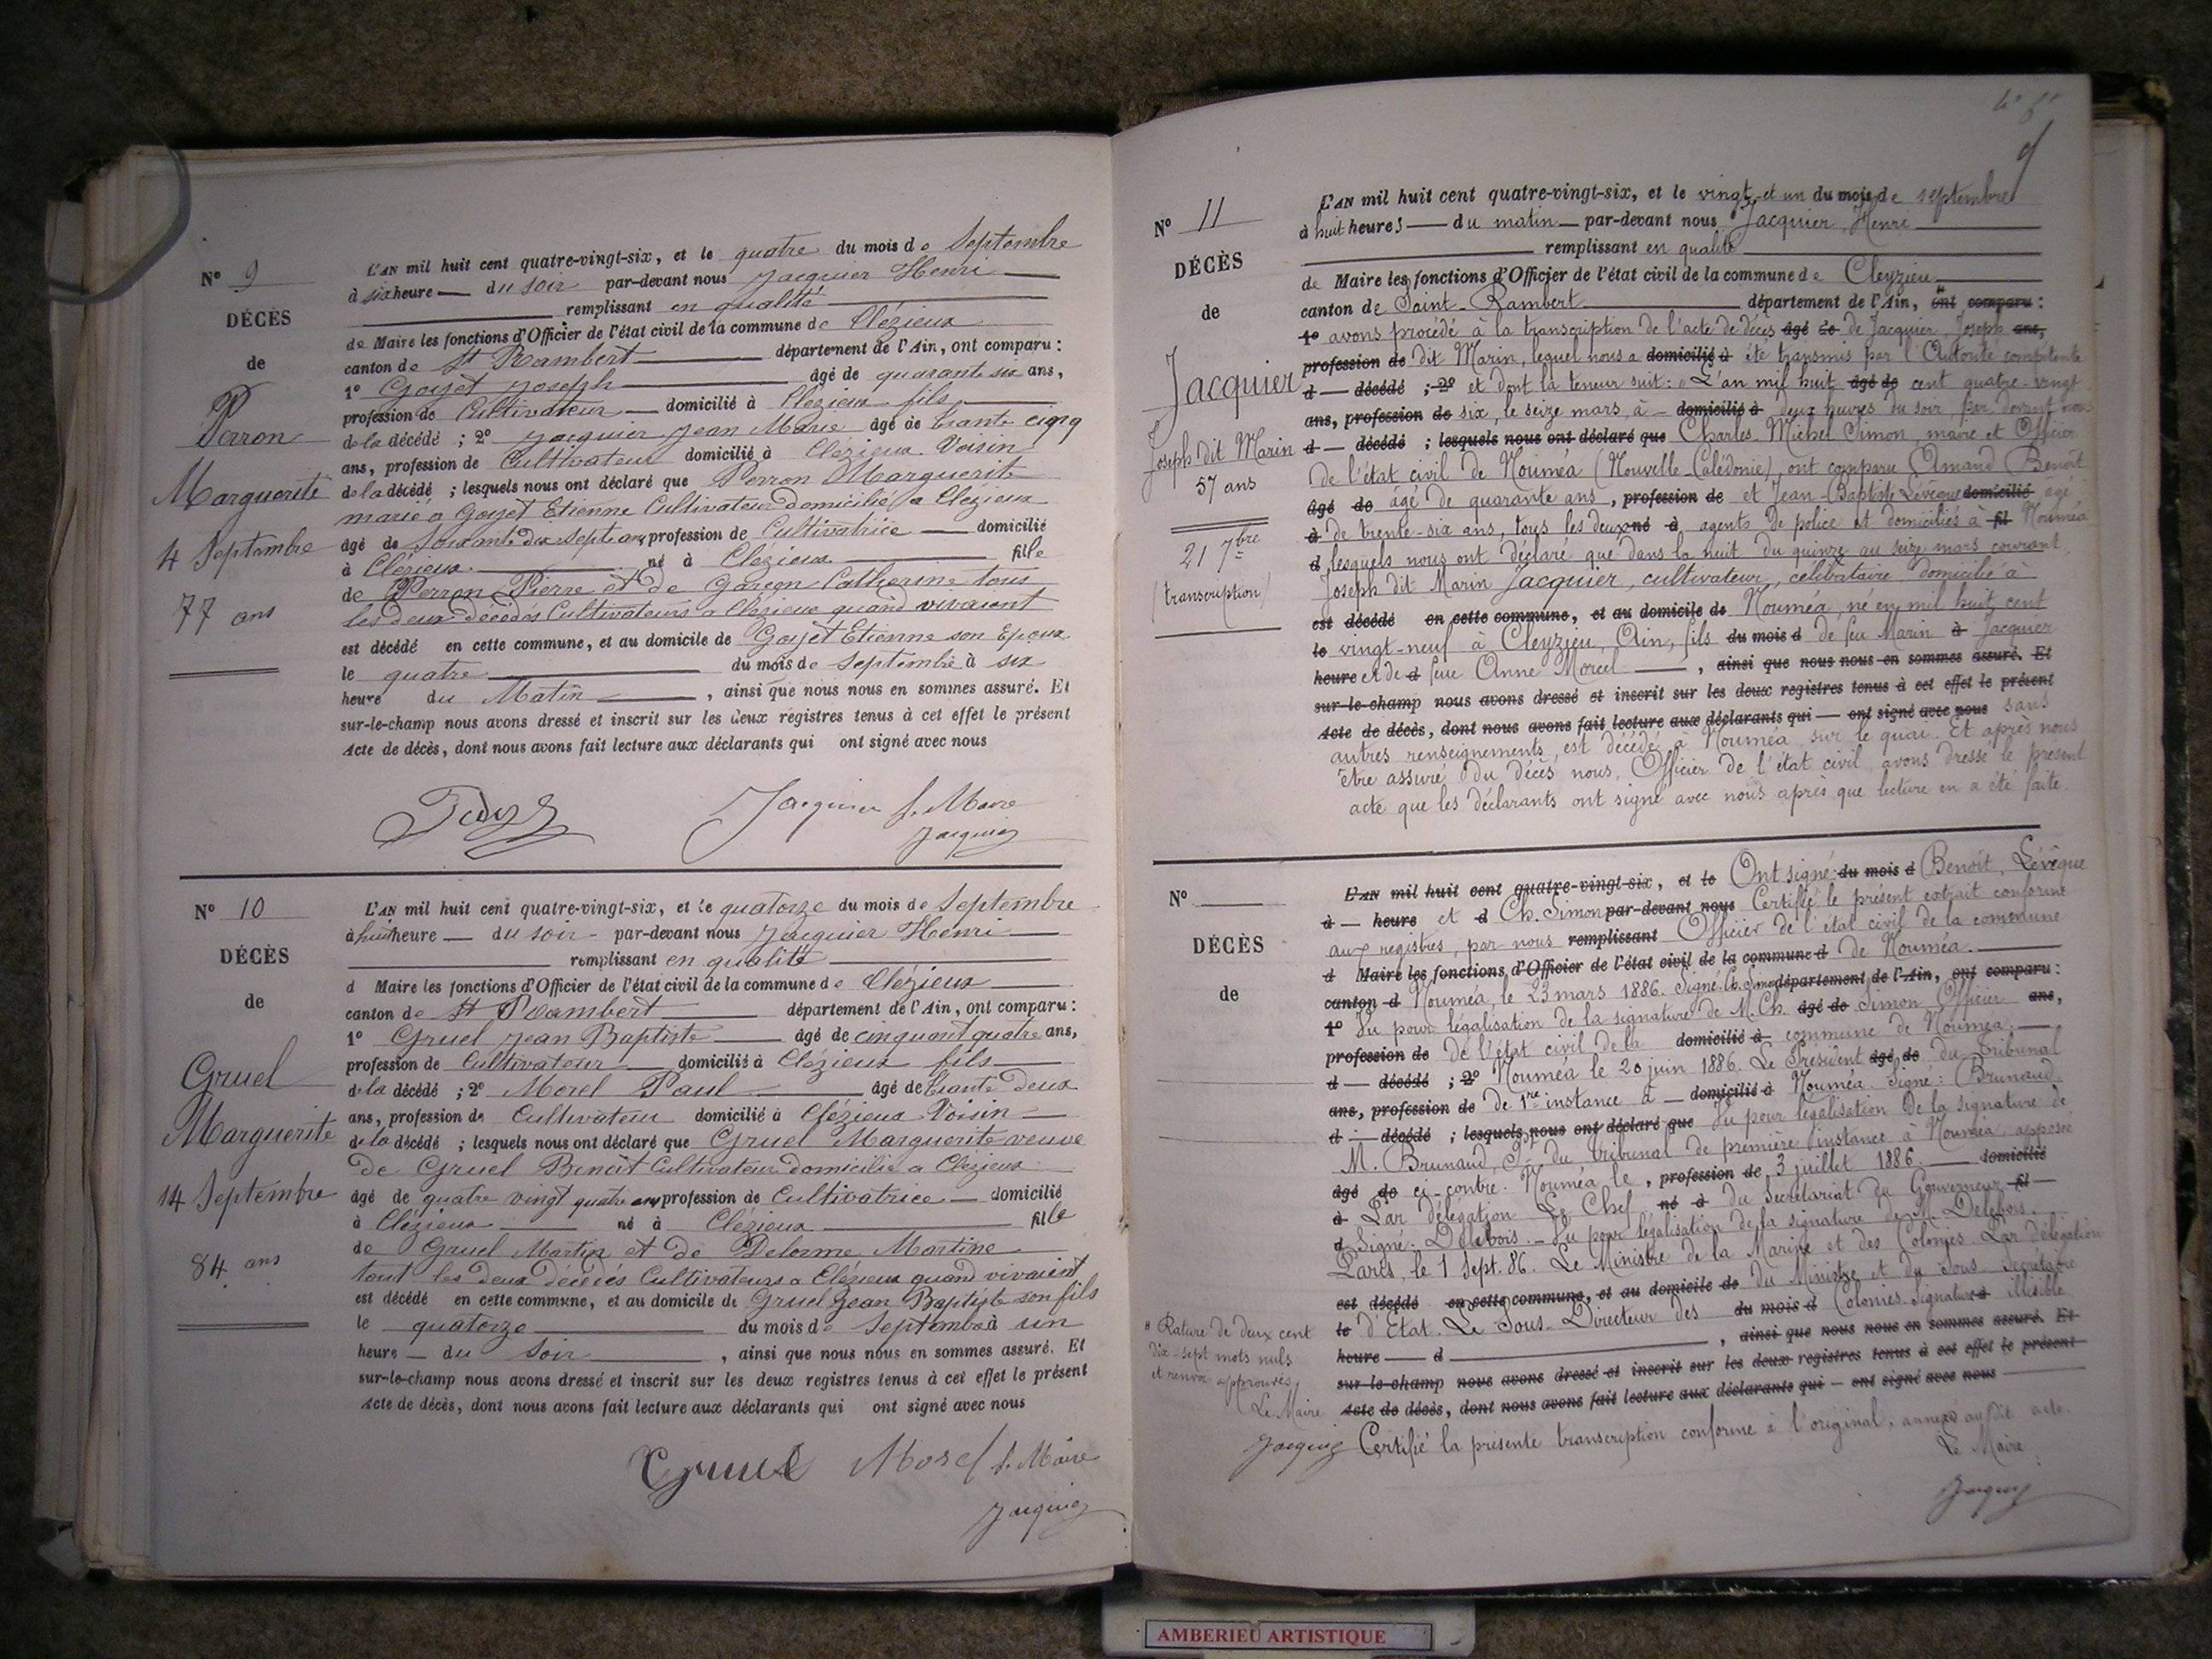 N° 9
DÉCÈS
de
Perron
Marguerite
4 Septembre
77 ans
L'AN mil huit cent quatre-vingt-six, et le quatre du mois de Septembre
à six heure — du soir par-devant nous Jacquier Henri
remplissant en qualité
de Maire les fonctions d'Officier de l'état civil de la commune de Clézieux
canton de St Rambert département de l'Ain, ont comparu :
1° Goyet Joseph âgé de quarante six ans,
profession de Cultivateur domicilié à Clézieux fils
de la décédé ; 2° Jacquier Jean Marie âgé de trante cinq
ans, profession de Cultivateur domicilié à Clézieux Voisin
de la décédé ; lesquels nous ont déclaré que Perron Marguerite
marié a Goyet Etienne Cultivateur domicilié a Clezieux
âgé de Soixante dix sept ans profession de Cultivatrice domicilié
à Clézieux né à Clezieux fille
de Perron Pierre et de Garçon Catherine tous
les deux décédés Cultivateurs a Clézieux quand vivaient
est décédé en cette commune, et au domicile de Goyet Etienne son Epoux
le quatre du mois de Septembre à six
heure du Matin , ainsi que nous nous en sommes assuré. Et
sur-le-champ nous avons dressé et inscrit sur les deux registres tenus à cet effet le présent
Acte de décès, dont nous avons fait lecture aux déclarants qui ont signé avec nous
Jacquier f. Maire
Jacquier
N° 10
DÉCÈS
de
Gruel
Marguerite
14 Septembre
84 ans
L'AN mil huit cent quatre-vingt-six, et le quatorze du mois de Septembre
à huit heure — du soir - par-devant nous Jacquier Henri
remplissant en qualité
d Maire les fonctions d'Officier de l'état civil de la commune de Clézieux
canton de St Rambert département de l'Ain, ont comparu :
1° Gruel Jean Baptiste âgé de cinquant quatre ans,
profession de Cultivateur domicilié à Clézieux fils
de la décédé ; 2° Morel Paul âgé de trante deux
ans, profession de Cultivateur domicilié à Clézieux Voisin
de la décédé ; lesquels nous ont déclaré que Gruel Marguerite veuve
de Gruel Benoit Cultivateur domicilié a Clézieux
âgé de quatre vingt quatre ans profession de Cultivatrice domicilié
à Clézieux né à Clézieux fille
de Gruel Martin et de Delorme Martine
tout les deux décédés Cultivateurs a Clézieux quand vivaient
est décédé en cette commune, et au domicile de Gruel Jean Baptiste son fils
le quatorze du mois de Septembre à un
heure — du soir , ainsi que nous nous en sommes assuré. Et
sur-le-champ nous avons dressé et inscrit sur les deux registres tenus à cet effet le présent
Acte de décès, dont nous avons fait lecture aux déclarants qui ont signé avec nous
Gruel Morel f. Maire
Jacquier
N° 11
DÉCÈS
de
Jacquier
Joseph dit Marin
57 ans
21 7bre
(transcription)
L'AN mil huit cent quatre-vingt-six, et le vingt-et-un du mois de septembre
à huit heures — du matin — par-devant nous Jacquier, Henri
remplissant en qualité
de Maire les fonctions d'Officier de l'état civil de la commune de Cleyzieu
canton de Saint-Rambert département de l'Ain, ont comparu :
1° avons procédé à la transcription de l'acte de décès âgé de de Jacquier, Joseph ans,
profession de dit Marin, lequel nous a domicilié à été transmis par l'Autorité compétente
d — décédé ; 2° et dont la teneur suit : « L'an mil huit âgé de cent quatre-vingt
ans, profession de six, le seize mars, à — domicilié à deux heures du soir, par devant nous
d — décédé ; lesquels nous ont déclaré que Charles Michel Simon, maire et Officier
de l'état civil de Nouméa (Nouvelle-Calédonie), ont comparu Amand Benoît
âgé de âgé de quarante ans, profession de et Jean-Baptiste Lévêque domicilié âgé
à de trente-six ans, tous les deux né à agents de police et domiciliés à fil Nouméa
d lesquels nous ont déclaré que dans la nuit du quinze au seize mars courant
Joseph dit Marin Jacquier, cultivateur, célibataire, domicilié à
est décédé en cette commune, et au domicile de Nouméa, né en mil huit cent
le vingt-neuf à Cleyzieu, Ain, fils du mois d de feu Marin à Jacquier
heure et de d feue Anne Morel , ainsi que nous nous en sommes assuré. Et
sur-le-champ nous avons dressé et inscrit sur les deux registres tenus à cet effet le présent
Acte de décès, dont nous avons fait lecture aux déclarants qui — ont signé avec nous sans
autres renseignements, est décédé à Nouméa sur le quai. Et après nous
être assuré du décès nous, Officier de l'état civil, avons dressé le présent
acte que les déclarants ont signé avec nous après que lecture en a été faite.
N°
DÉCÈS
de
L'AN mil huit cent quatre-vingt-six, et le Ont signé : du mois d Benoît, Lévêque
à — heure et d Ch. Simon par-devant nous Certifié le présent extrait conforme
aux registres, par nous remplissant Officier de l'état civil de la commune
d Maire les fonctions d'Officier de l'état civil de la commune d de Nouméa.
canton d Nouméa, le 23 mars 1886. Signé : Ch. Simon département de l'Ain, ont comparu :
1° Vu pour légalisation de la signature de M. Ch. âgé de Simon Officier ans,
profession de de l'état civil de la domicilié à commune de Nouméa.
d — décédé ; 2° Nouméa le 20 juin 1886. Le Président âgé de du Tribunal
ans, profession de de 1re instance à — domicilié à Nouméa. Signé : Brunaud.
d — décédé ; lesquels nous ont déclaré que Vu pour légalisation de la signature de
M. Brunaud, Pt du tribunal de première instance à Nouméa, apposée
âgé de ci-contre. Nouméa le , profession de 3 juillet 1886. domicilié
à Par délégation Le Chef né à du Secrétariat du Gouverneur fil
d Signé : Delebois. — Vu pour légalisation de la signature de M. Delebois.
Paris, le 1 Sept. 86. Le Ministre de la Marine et des Colonies. Par délégation
est décédé en cette commune, et au domicile de du Ministre et du Sous-Secrétaire
le d'Etat. Le Sous-Directeur des du mois d Colonies. Signature d illisible
heure — d , ainsi que nous nous en sommes assuré. Et
sur-le-champ nous avons dressé et inscrit sur les deux registres tenus à cet effet le présent
Acte de décès, dont nous avons fait lecture aux déclarants qui — ont signé avec nous
Certifié la présente transcription conforme à l'original, annexé audit acte.
Le Maire
Jacquier
Rature de deux cent
dix-sept mots nuls
et renvoi approuvés,
Le Maire
Jacquier
AMBERIEU ARTISTIQUE